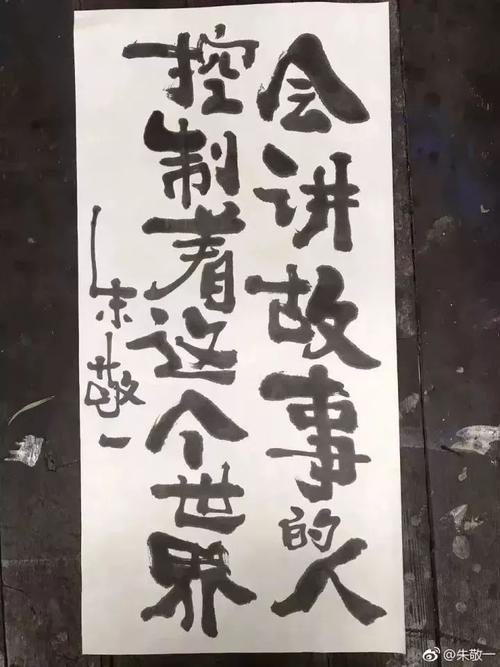 会讲故事的人
控制着这个世界
朱敬一
@朱敬一